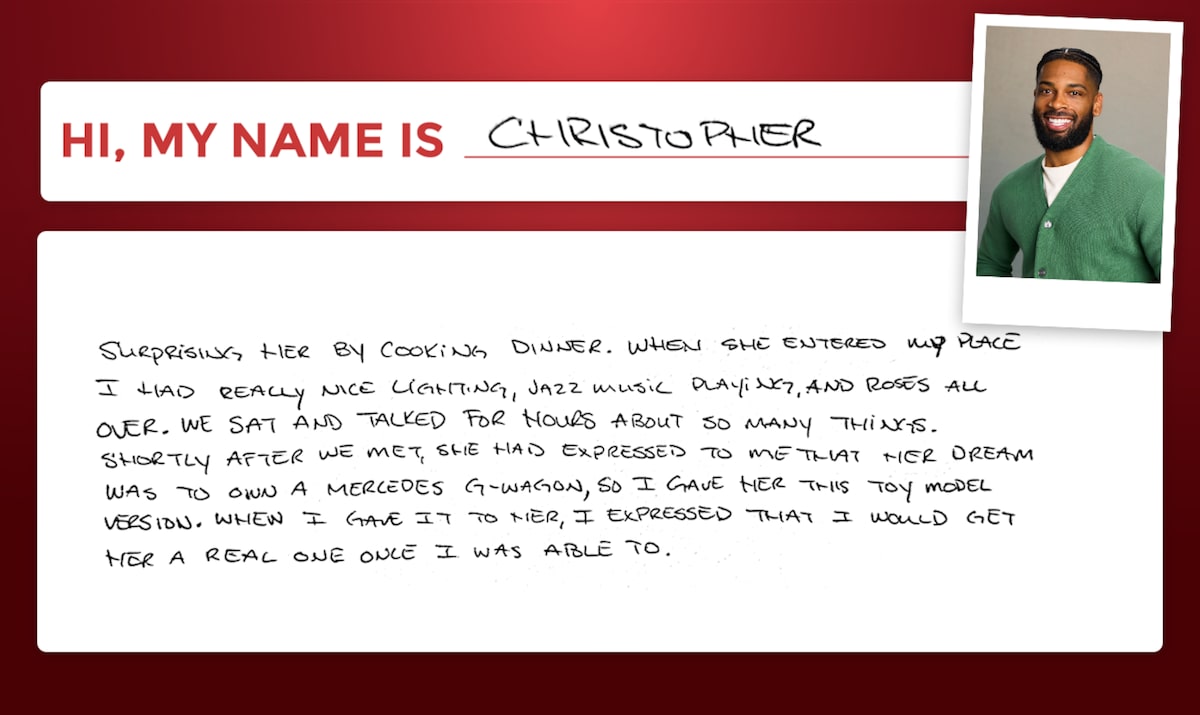 HI, MY NAME IS CHRISTOPHER
SURPRISING HER BY COOKING DINNER. WHEN SHE ENTERED MY PLACE
I HAD REALLY NICE LIGHTING, JAZZ MUSIC PLAYING, AND ROSES ALL
OVER. WE SAT AND TALKED FOR HOURS ABOUT SO MANY THINGS.
SHORTLY AFTER WE MET, SHE HAD EXPRESSED TO ME THAT HER DREAM
WAS TO OWN A MERCEDES G-WAGON, SO I GAVE HER THIS TOY MODEL
VERSION. WHEN I GAVE IT TO HER, I EXPRESSED THAT I WOULD GET
HER A REAL ONE ONCE I WAS ABLE TO.